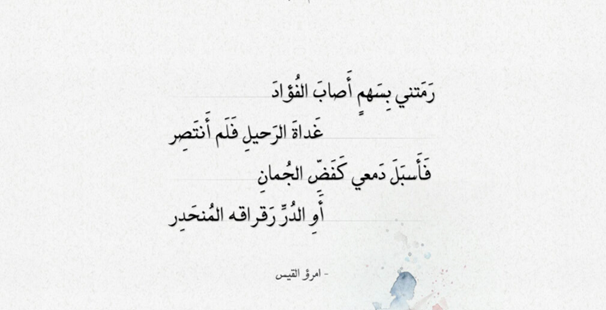 رَمَتني بِسَهمٍ أَصابَ الفُؤادَ
غَداةَ الرَحيلِ فَلَم أَنتَصِر
فَأَسبَلَ دَمعي كَفَضِّ الجُمانِ
أَوِ الدُرِّ رَقراقه المُنحَدِر
- امرؤ القيس